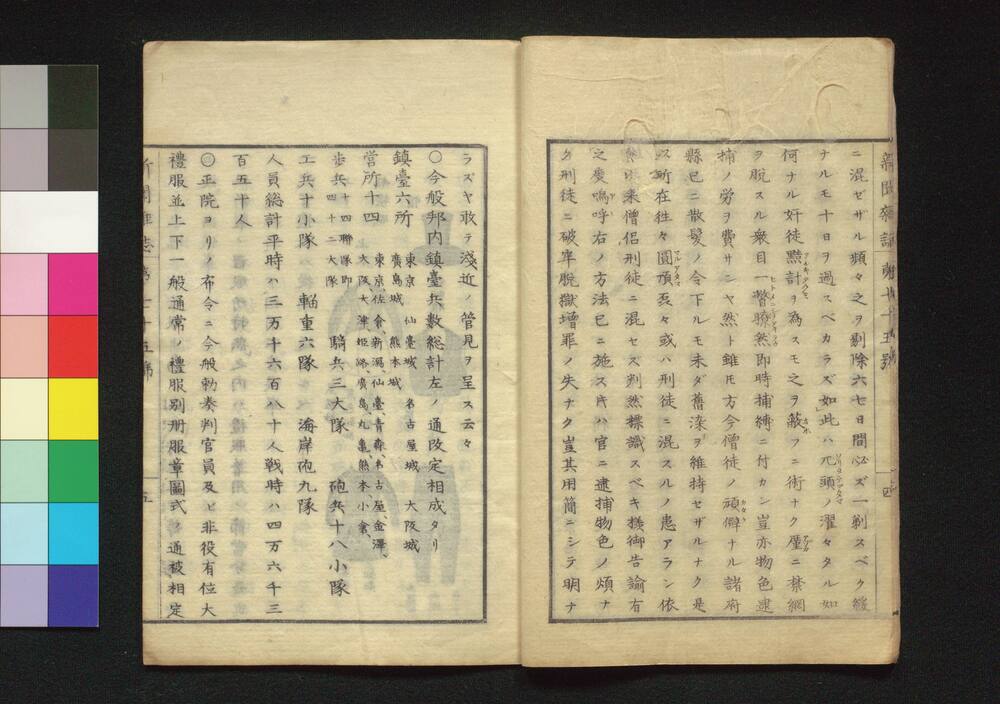 新聞雑誌 第七十五號 四
ニ混ゼザル頻々之ヲ剔除六七日間必ズ一剃スベク縦
ナルモ十日ヲ過スベカラズ如此ハ兀頭ノ濯々タル如
何ナル奸徒黠計ヲ為スモ之ヲ蔽フニ術ナク僅ニ禁網
ヲ脱スル衆目一瞥瞭然即時捕縛ニ付カン豈亦物色逮
捕ノ労ヲ費サンヤ然ト雖モ方今僧徒ノ頑僻ナル諸府
縣已ニ散髪ノ令下ルモ未ダ舊染ヲ維持セザルナク是
以所在往々圓頂或ハ刑徒ニ混スルノ患アラン依
来僧侶刑徒ニ混セス判然標識スベキ様御告諭有
之度嗚呼右ノ方法已ニ施ス片ハ官ニ逮捕物色ノ煩ナ
ク刑徒ニ破牢脱獄増罪ノ失ナク豈其用簡ニシテ明ナ
ラズヤ敢テ淺近ノ管見ヲ呈ス云々
〇今般邦内鎮臺兵数総計左ノ通改定相成タリ
鎮臺六所 東京 仙臺城 名古屋城 大阪城
廣島城 熊本城
営所十四 東京、佐倉、新潟、仙臺、青森、名古屋、金澤、
大阪、大津、姫路、廣島、丸亀、熊本、小倉、
歩兵 十四聯隊即
四十二大隊 騎兵三大隊 砲兵十八小隊
工兵十小隊 輜重六隊 海岸砲九隊
人員総計平時ハ三万千六百八十人戦時ハ四万六千三
百五十人
〇正院ヨリノ布令ニ今般勅奏判官員及ビ非役有位大
禮服並上下一般通常ノ禮服別册服章圖式ノ通被相定
新聞雑誌 第七十五號 五